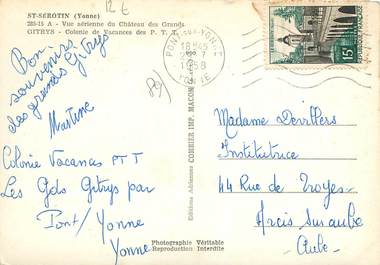 ST-SEROTIN (Yonne)
285-15 A - Vue aérienne du Château des Grands
GITRYS - Colonie de Vacances des P. T. T.
12 €
(89)
Bon
souvenirs
des grands Gitrys
Martine
Colonie Vacances PTT
Les Gds Gitrys par
Pont/Yonne
Yonne
Editions Aériennes COMBIER IMP. MACON
PONT-SUR-YONNE
18H45
1958
YONNE
15F
Madame Devilliers
Institutrice
44 Rue de Troyes
Arcis sur aube
Aube
Photographie Véritable
Reproduction Interdite